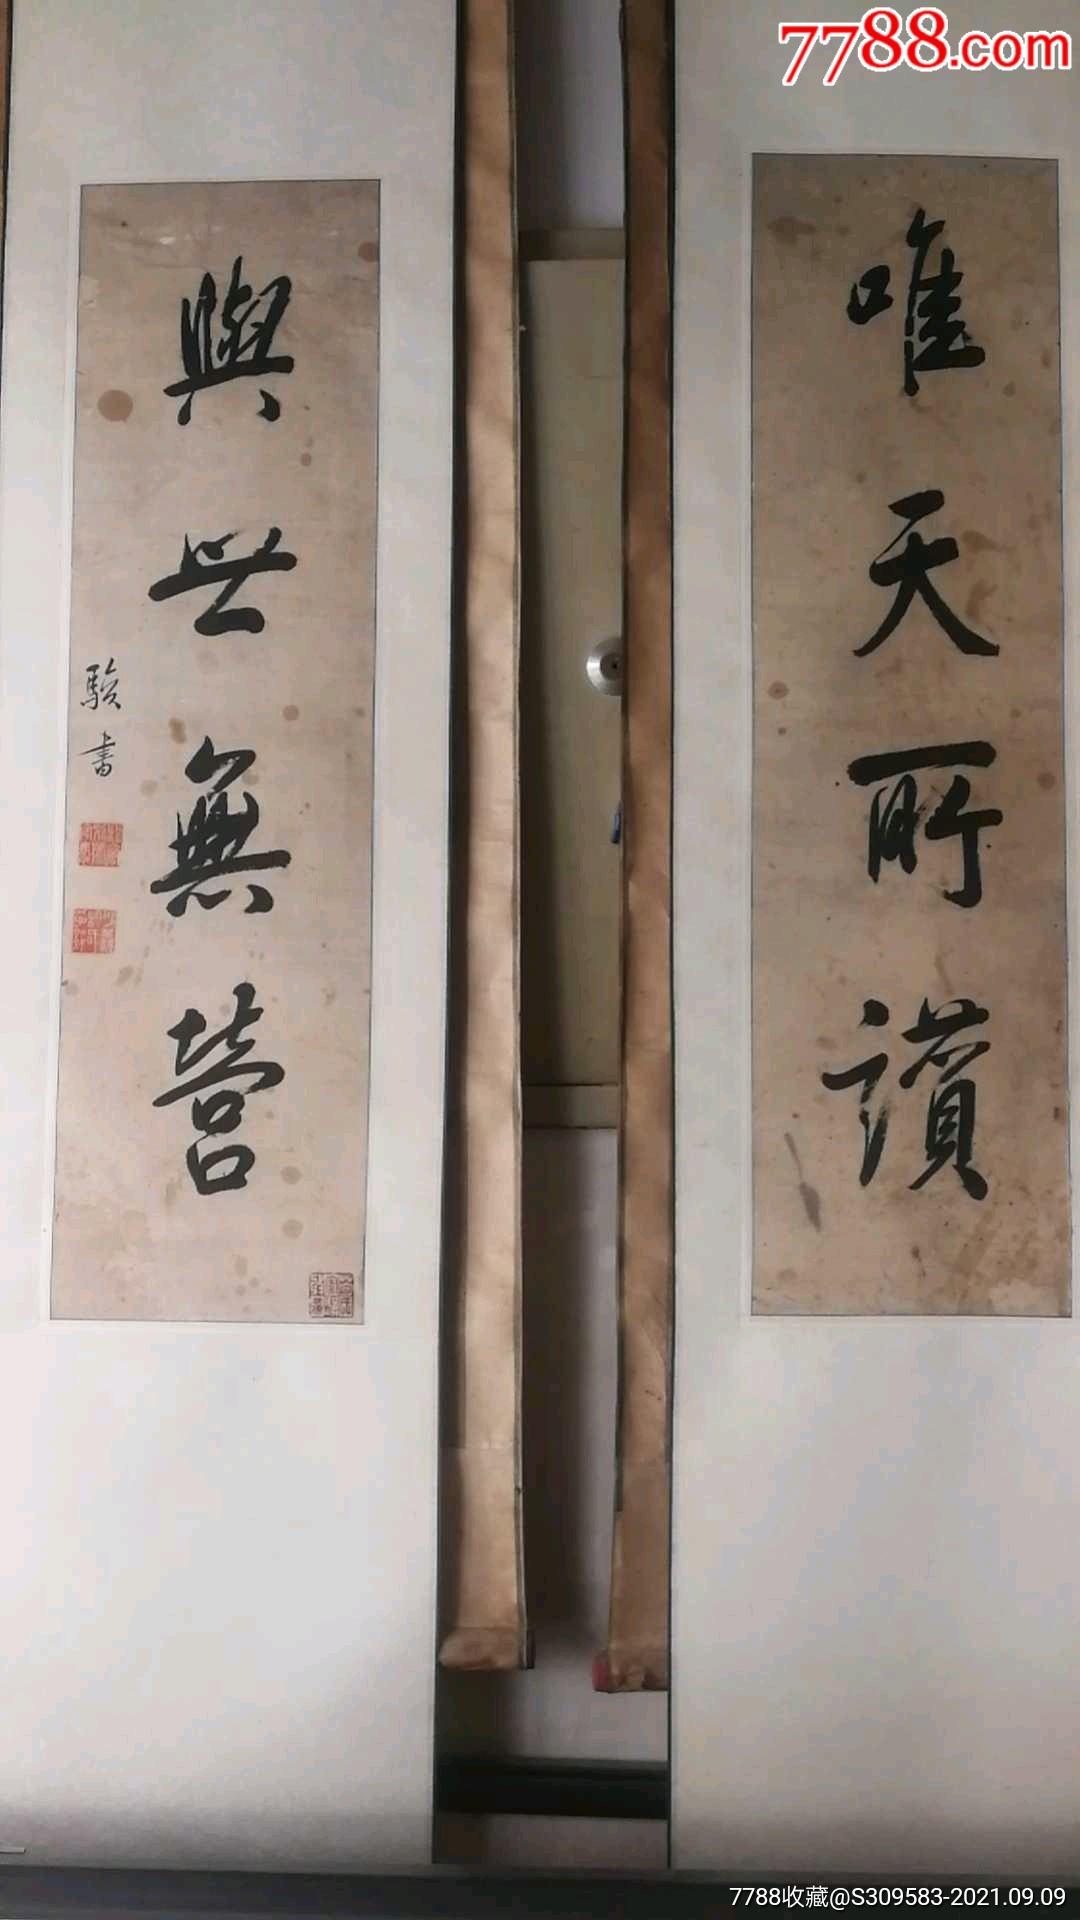 7788.com
唯天所讃
與世無營
駿書
7788收藏@S309583-2021.09.09